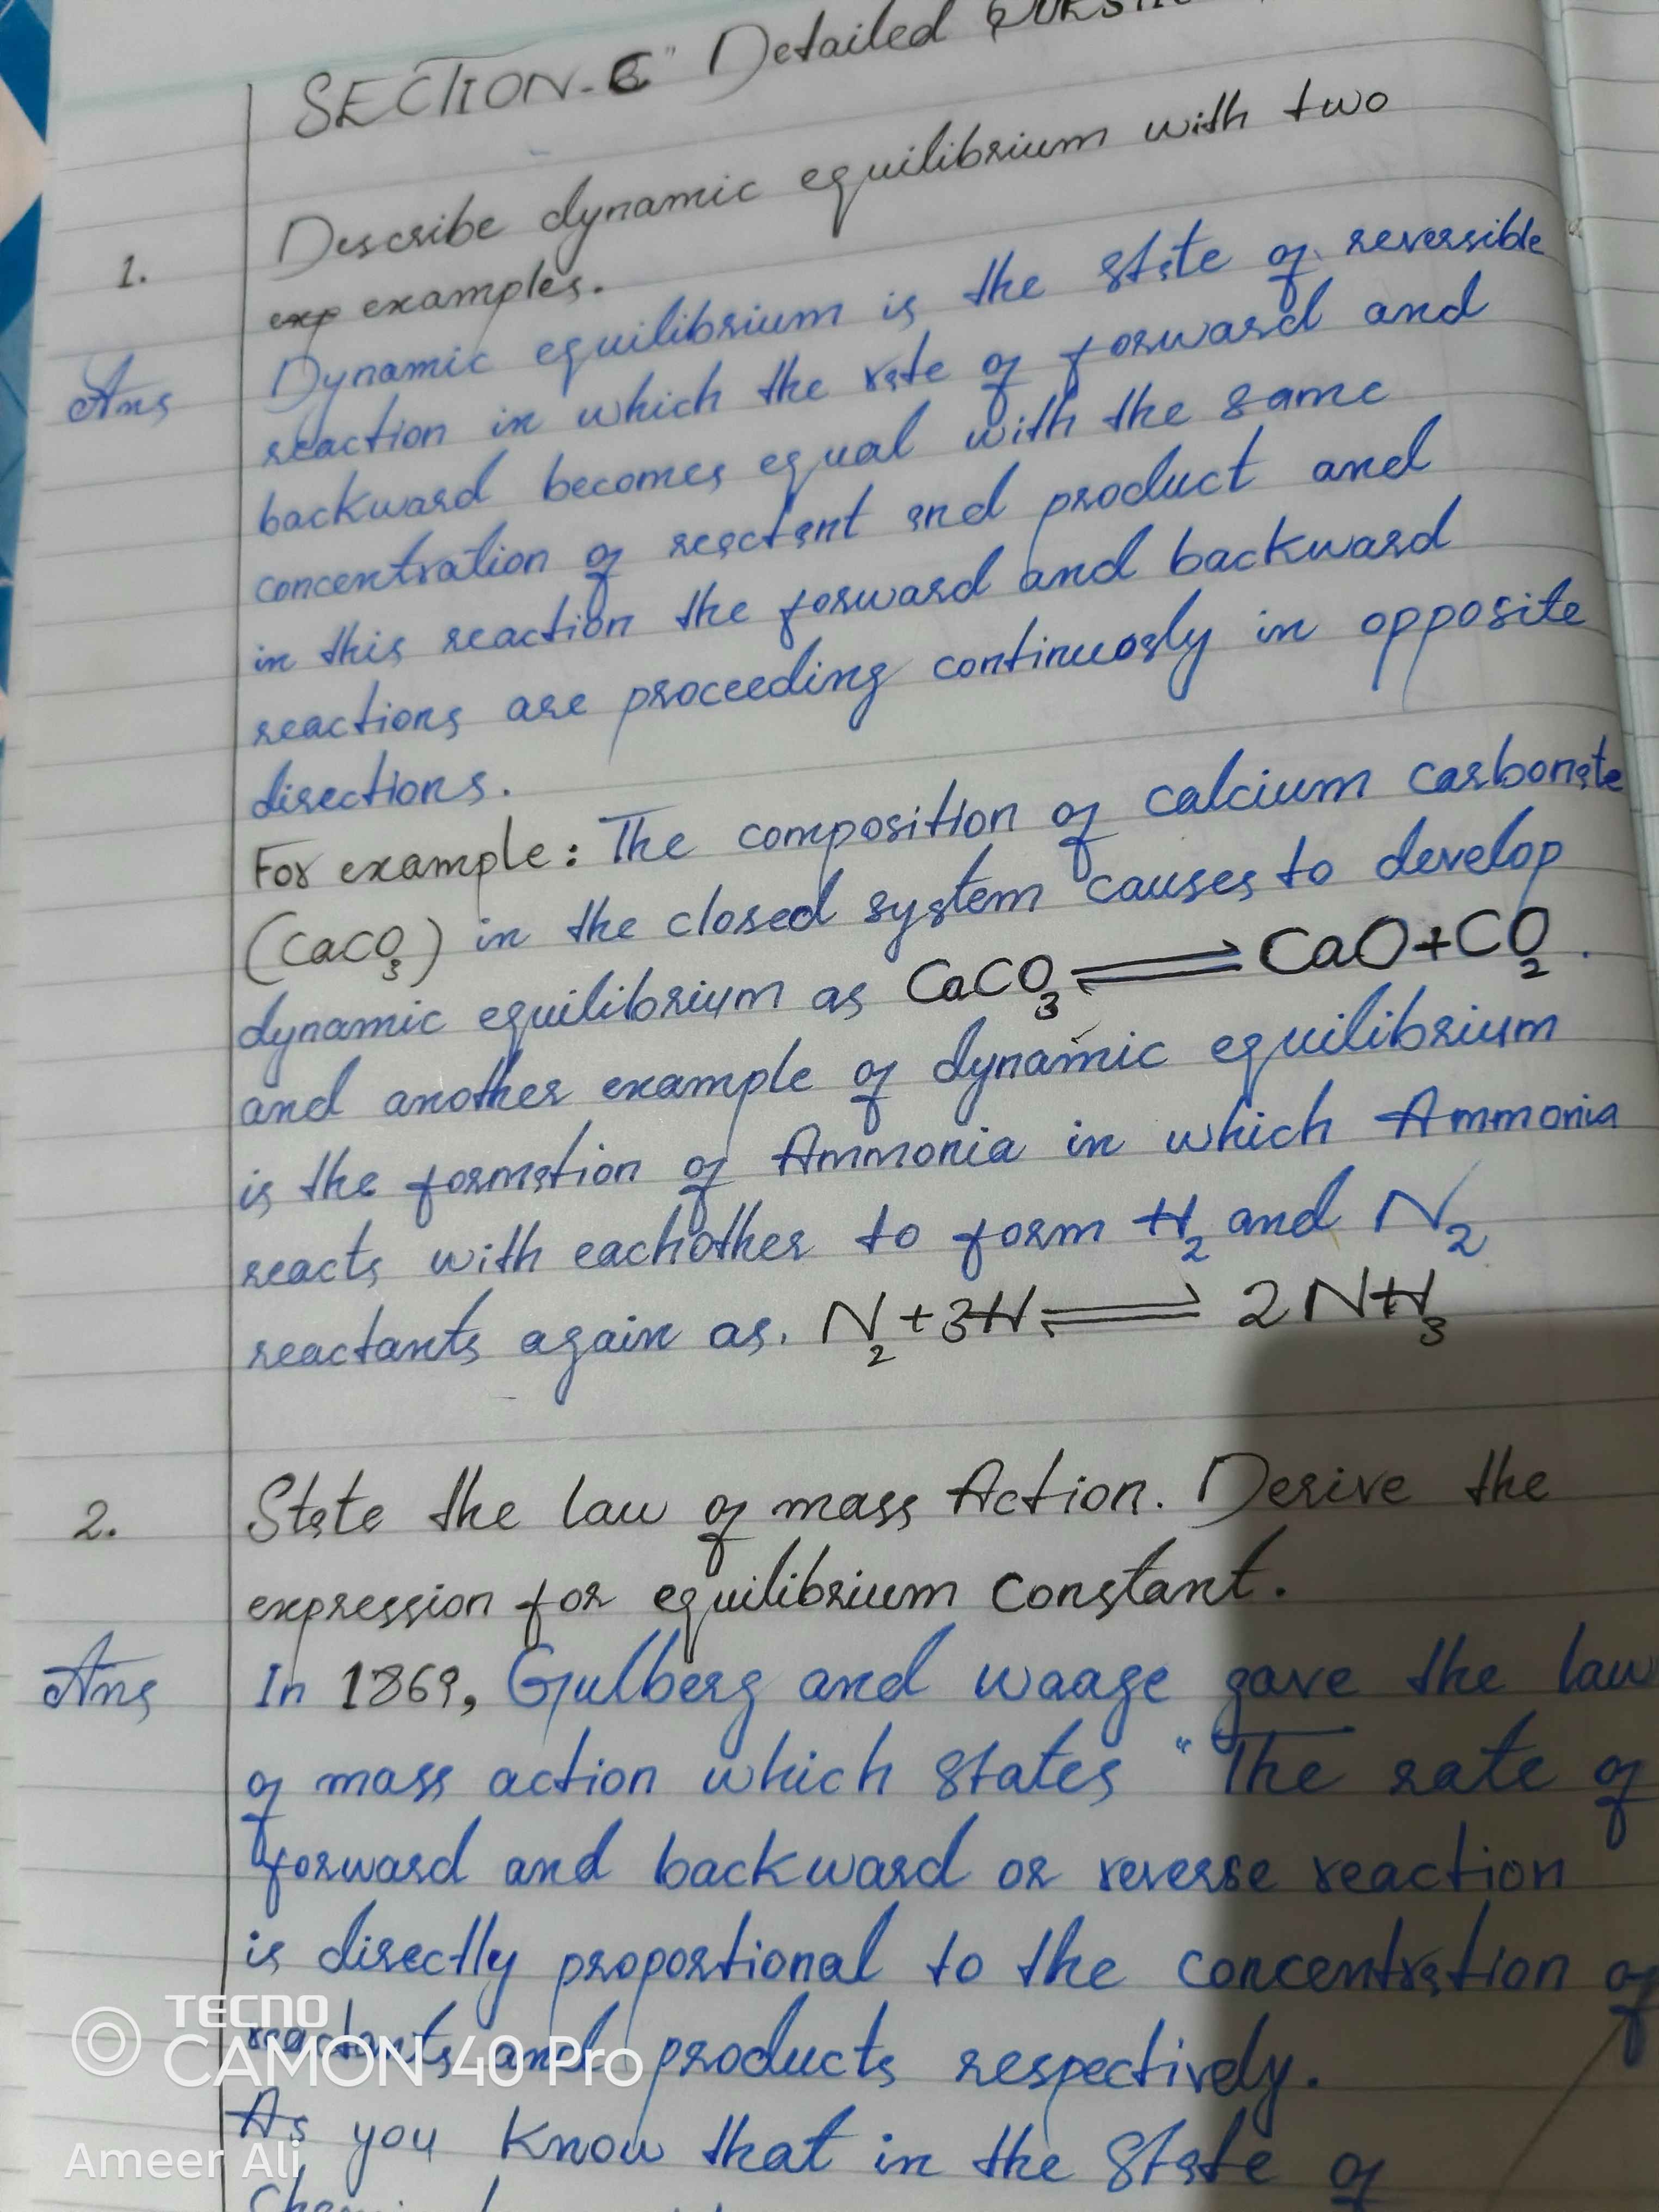 SECTION-C" Detailed
1. Describe dynamic equilibrium with two
exp examples.
Ans Dynamic equilibrium is the state of reversible
reaction in which the rate of forward and
backward becomes equal with the same
concentration of reactant and product and
in this reaction the forward and backward
reactions are proceeding continuosly in opposite
directions.
For example: The composition of calcium carbonate
(CaCO₃) in the closed system causes to develop
dynamic equilibrium as CaCO₃ ⇌ CaO+CO₂.
and another example of dynamic equilibrium
is the formation of Ammonia in which Ammonia
reacts with eachother to form H₂ and N₂
reactants again as. N₂+3H ⇌ 2NH₃
2. State the law of mass Action. Derive the
expression for equilibrium constant.
Ans In 1869, Gulberg and waage gave the law
of mass action which states "The rate of
forward and backward or reverse reaction
is directly proportional to the concentration of
reactants and products respectively.
As you know that in the state of
TECNO
CAMON 40 Pro
Ameer Ali